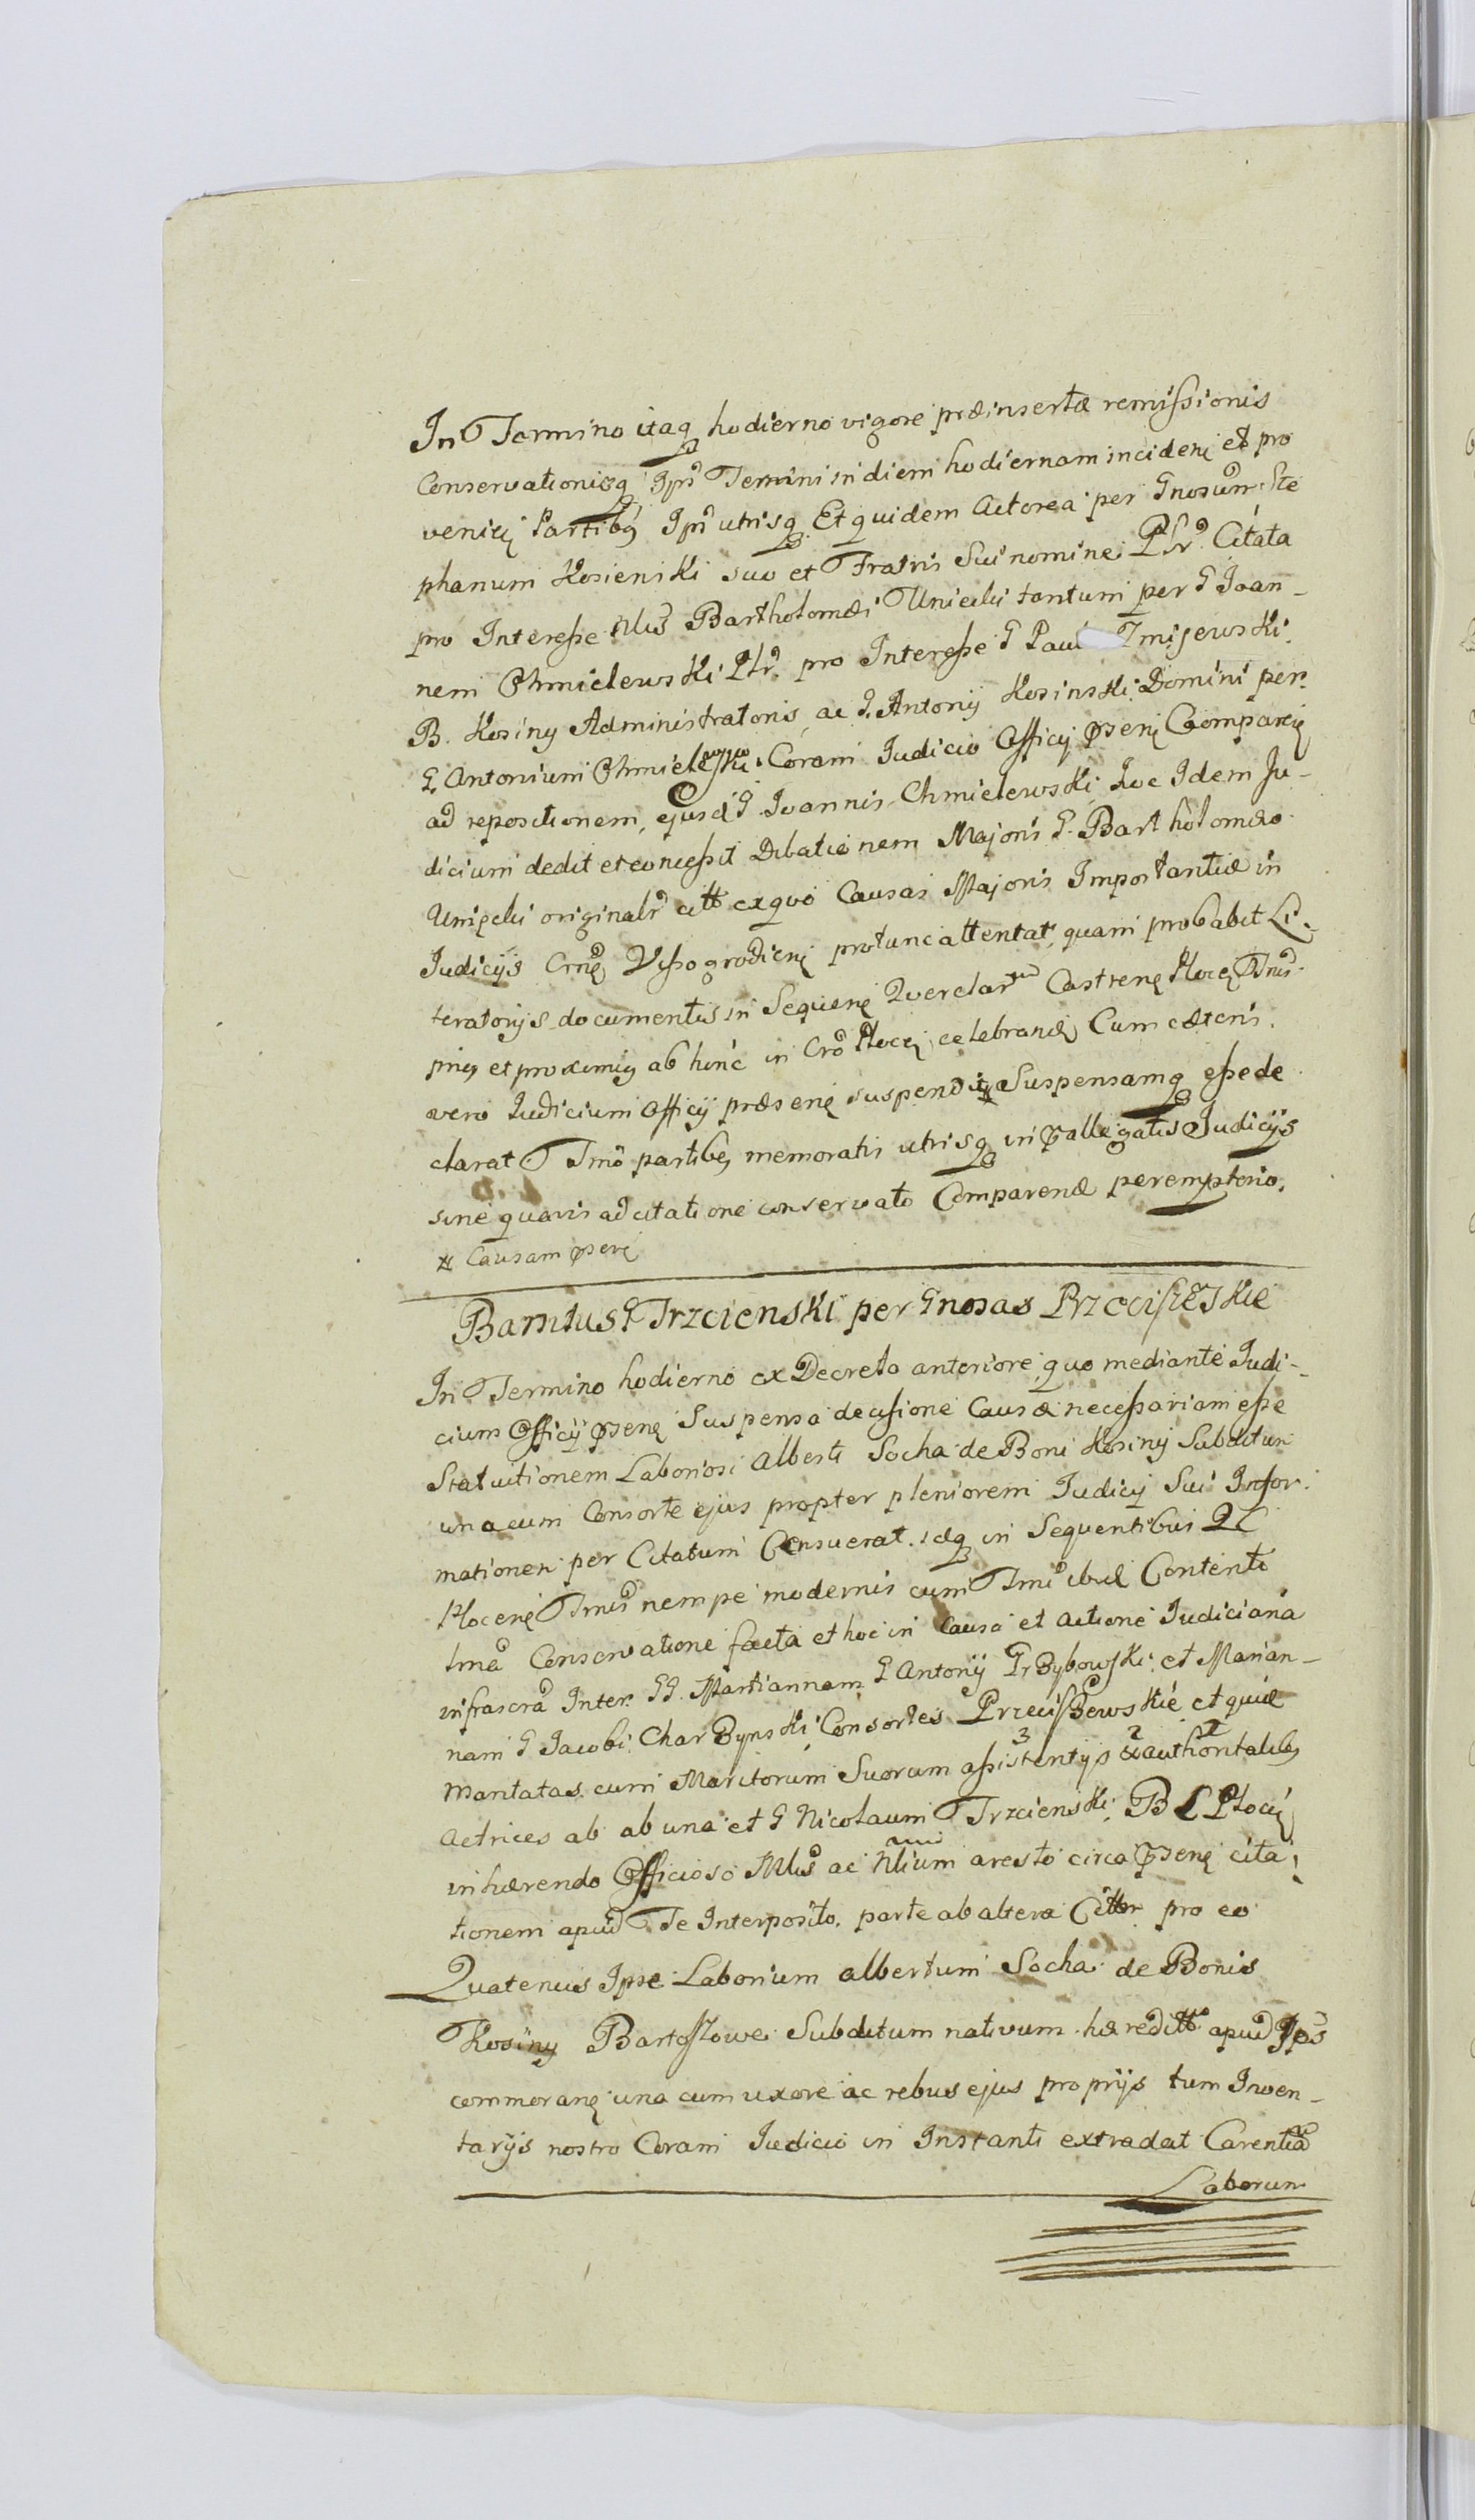 In Termino itaq hodierno vigore præinsertæ remissionis
Conservationisq Ipŝ Termini in diem hodiernam inciden et pro
venien Partibq Ipŝ utrisq Et quidem Actorea per Gnosum Ste
phanum Kosienski suo et Fratris Sui nomine Plr Citata
pro Interesse Mlis Bartholomæi Uniecki tantum per G Joan-
nem Chmielewski Plr. pro Interesse G Pauli Zmijewski
B. Kosiny Administratoris, ac G. Antonij Kosinski Domini per
G. Antonium Chmielewski. Coram Judicio Officij pseñ Comparen
ad repositionem, ejusd G. Joannis Chmielewski Loc Idem Ju-
dicium dedit et concessit Dilationem Majoris G. Bartholomæo
Uniecki originalr citt ex quo Causas Majoris Importantiæ in
Judicijs Crnẽ Vissogrodien protunc attentat, quam probabit Li-
teratorijs documentis in Sequen Querelar Castren Plocen Tmis
pnis et proximis ab hinc in Cro Plocen celebran Cum cæteris
vero Judicium Officij præsen suspendit # Suspensamq esse de
clarat Tmo partibq memoratis utrisq in pallegatis Judicijs
sine quavis adcitatione conservato Comparend peremptorio.
# Causam psen
Bamitus G Trzcienski per Gnosas Przeciszewskie
In Termino hodierno ex Decreto anteriore, quo mediante Judi-
cium Officij psen Suspensa decisione Causæ necessariam esse
Statuitionem Laboriosi Alberti Socha de Boni Kosiny Subditum
una cum Consorte ejus propter pleniorem Judicij Sui Infor-
mationem per Citatum Censuerat. idq in Sequentibus QC
Plocen Tmis nempe modernis cum Tmi ibid Contenti
tmã Conservatione facta et hoc in Causa et Actione Judiciaria
infrascra Inter GG. Martiannam G Antonij Grzybowski, et Marian-
nam G Jacobi Charzynski Consortes Przeciszewskie et quid
Maritatas cum Maritorum Suorum assistentijs 3 & 2 authoritatibq 1
Actrices ab ab una et G Nicolaum Trzcienski B C Plocen
inhærendo Officioso Mlis ac Nlium aresto circa psen cita-
tionem apud Te Interposito. parte ab altera Cittr pro eo
Quatenus Ipse Laborium Albertum Socha de Bonis
Kosiny Bartoszowe Subditum nativum hæreditt apud Ips
commoran una cum uxore ac rebus ejus proprijs tum Inven-
tarijs nostro Coram Judicio in Instanti extradat Carentia
Laborum